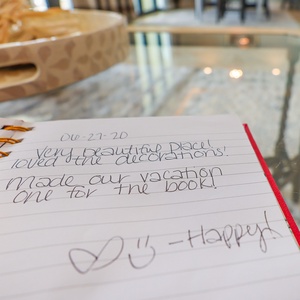 06-27-20
Very beautiful place!
loved the decorations!
Made our vacation
one for the book!
-Happy!